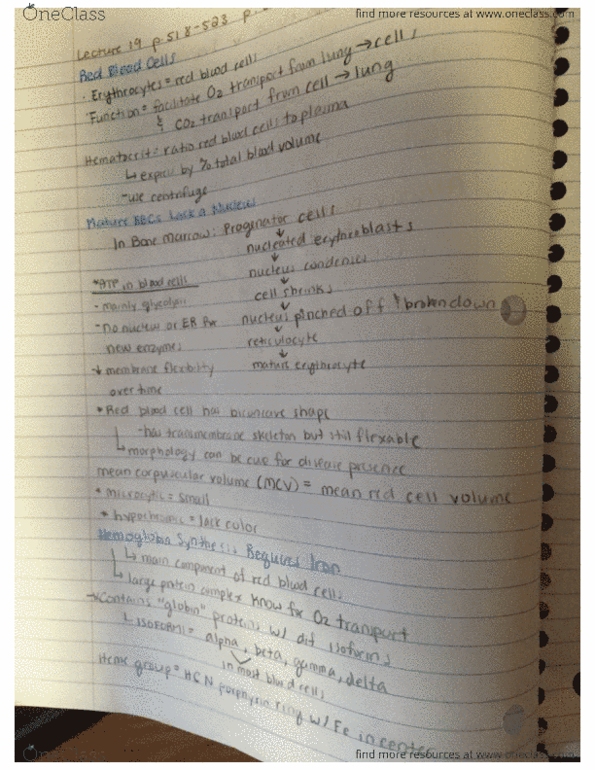 OneClass
find more resources at www.oneclass.com
Lecture 19 p.518-523 p.
Red Blood Cells
· Erythrocytes = red blood cells
· Function = facilitate O2 transport from lung → cells
& CO2 transport from cell → lung
Hematocrit = ratio red blood cells to plasma
↳ express by % total blood volume
- use centrifuge
Mature RBCs Lack a Nucleus
In Bone Marrow: Progenator cells
↓
nucleated erythroblasts
↓
nucleus condenses
*ATP in blood cells
↓
cell shrinks
- mainly glycolysis
↓
- No nucleus or ER for nucleus pinched off & broken down
↓
new enzymes reticulocyte
↓
- ↓ membrane flexibility mature erythrocyte
over time
* Red blood cell has biconcave shape
- has transmembrane skeleton but still flexable
↳ morphology can be cue for disease presence
mean corpuscular volume (MCV) = mean red cell volume
* microcytic = small
* hypochromic = lack color
Hemoglobin Synthesis Requires Iron
↳ main component of red blood cells
↳ large protein complex know for O2 transport
→ Contains "globin" proteins w/ dif isoforms
↳ ISOFORMS = alpha, beta, gamma, delta
in most blood cells
Heme group = HCN porphyrin ring w/ Fe in center
OneClass
find more resources at www.oneclass.com